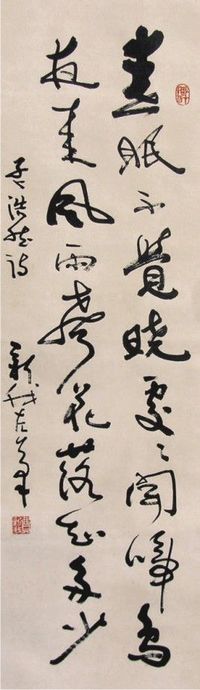 春眠不覺曉處々聞啼鳥
夜來風雨聲花落知多少
孟浩然詩
新我左筆